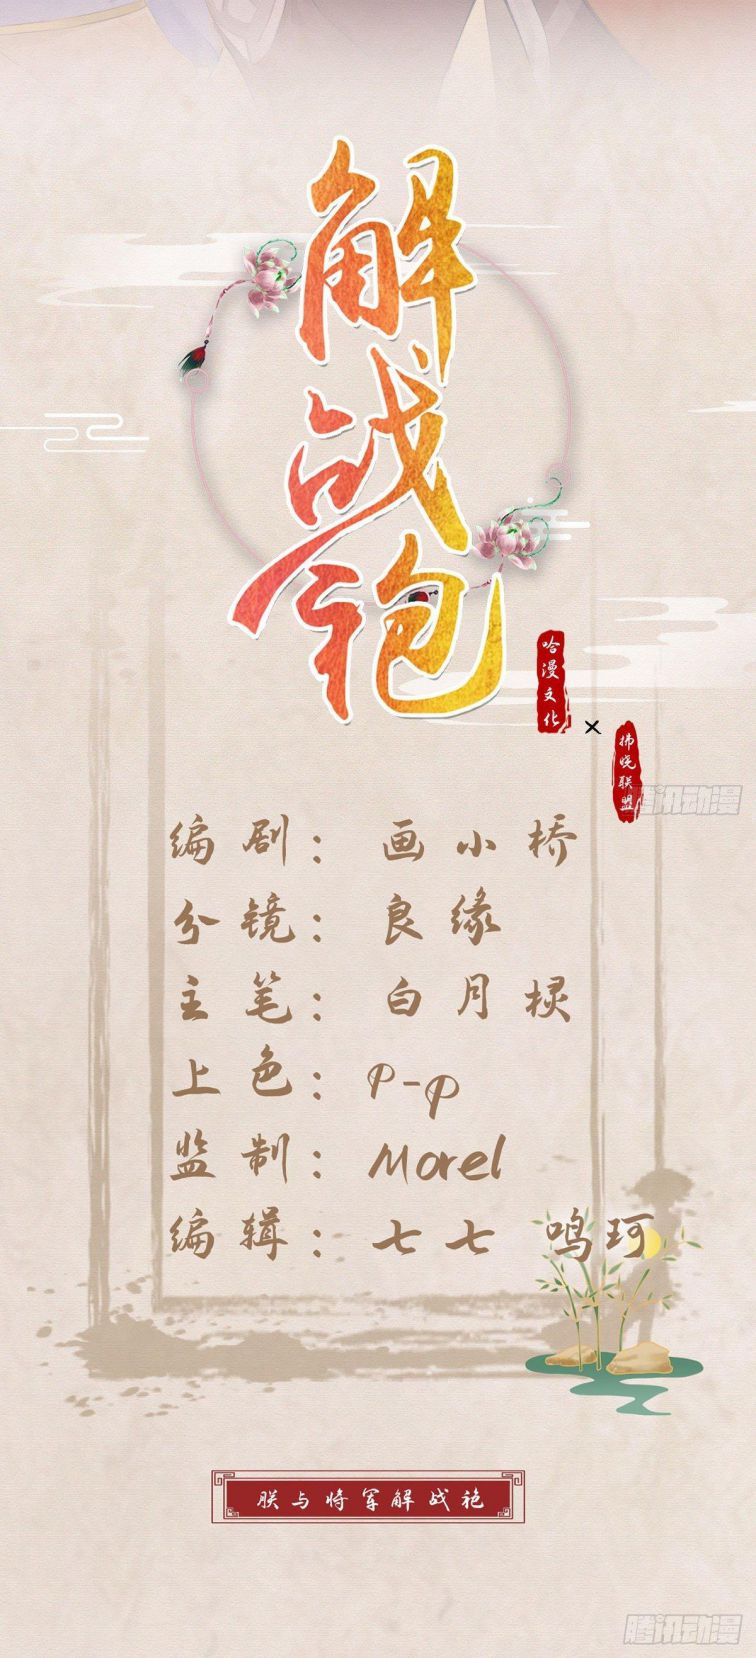 解战袍
哈漫文化
×
拂晓联盟
腾讯动漫
编剧：画小桥
分镜：良缘
主笔：白月棂
上色：P-P
监制：Morel
编辑：七七 鸣珂
朕与将军解战袍
腾讯动漫